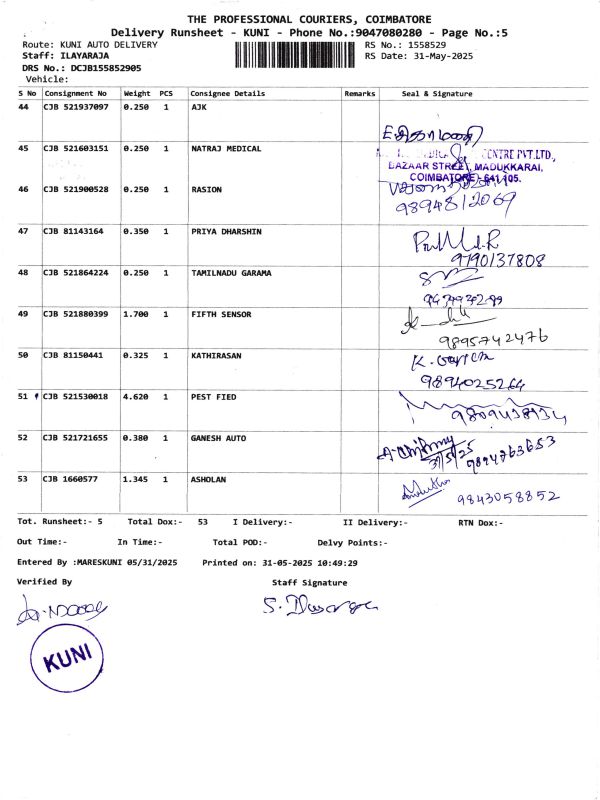 THE PROFESSIONAL COURIERS, COIMBATORE
Delivery Runsheet - KUNI - Phone No.:9047080280 - Page No.:5
Route: KUNI AUTO DELIVERY RS No.: 1558529
Staff: ILAYARAJA RS Date: 31-May-2025
DRS No.: DCJB155852905
Vehicle:
S No Consignment No Weight PCS Consignee Details Remarks Seal & Signature
44 CJB 521937097 0.250 1 AJK
45 CJB 521603151 0.250 1 NATRAJ MEDICAL
CENTRE PVT.LTD.,
BAZAAR STREET, MADUKKARAI,
COIMBATORE - 641 105.
46 CJB 521900528 0.250 1 RASION
9894812069
47 CJB 81143164 0.350 1 PRIYA DHARSHIN
9790137808
48 CJB 521864224 0.250 1 TAMILNADU GARAMA
49 CJB 521880399 1.700 1 FIFTH SENSOR
9895742476
50 CJB 81150441 0.325 1 KATHIRASAN
9894025264
51 CJB 521530018 4.620 1 PEST FIED
52 CJB 521721655 0.380 1 GANESH AUTO
31/5/25 9894763653
53 CJB 1660577 1.345 1 ASHOLAN
9843058852
Tot. Runsheet:- 5 Total Dox:- 53 I Delivery:- II Delivery:- RTN Dox:-
Out Time:- In Time:- Total POD:- Delvy Points:-
Entered By :MARESKUNI 05/31/2025 Printed on: 31-05-2025 10:49:29
Verified By Staff Signature
KUNI